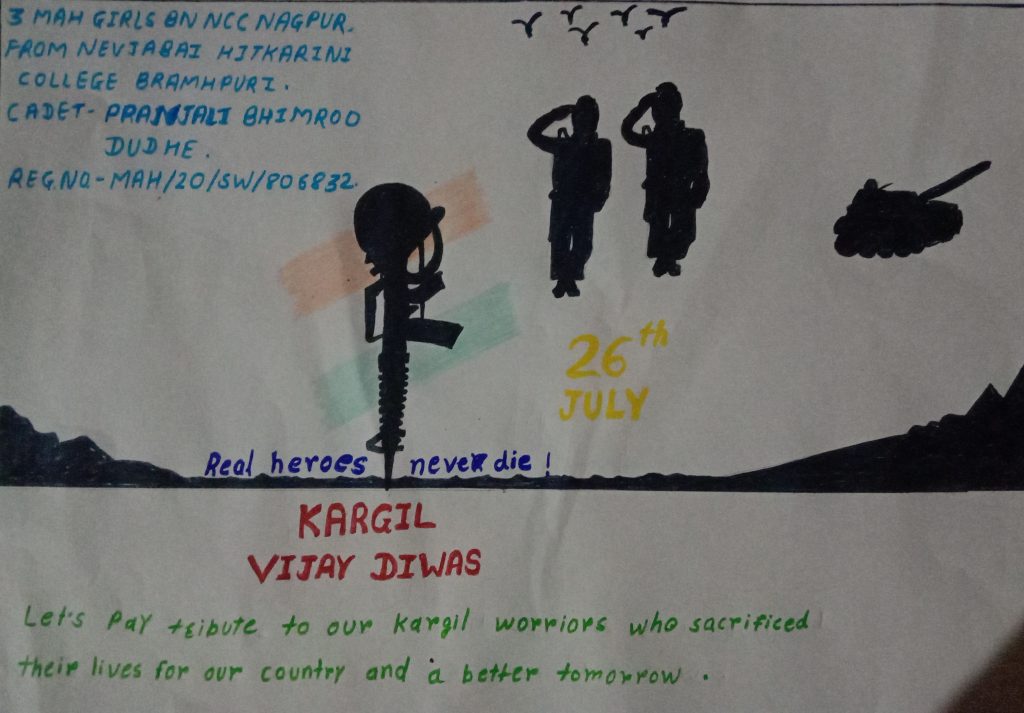 3 MAH GIRLS BN NCC NAGPUR.
FROM NEVJABAI HITKARINI
COLLEGE BRAMHPURI.
CADET- PRANJALI BHIMROO
DUDHE.
REG.NO-MAH/20/SW/806832.
26th
JULY
Real heroes never die!
KARGIL
VIJAY DIWAS
Let's pay tribute to our Kargil worriors who sacrificed
their lives for our country and a better tomorrow.